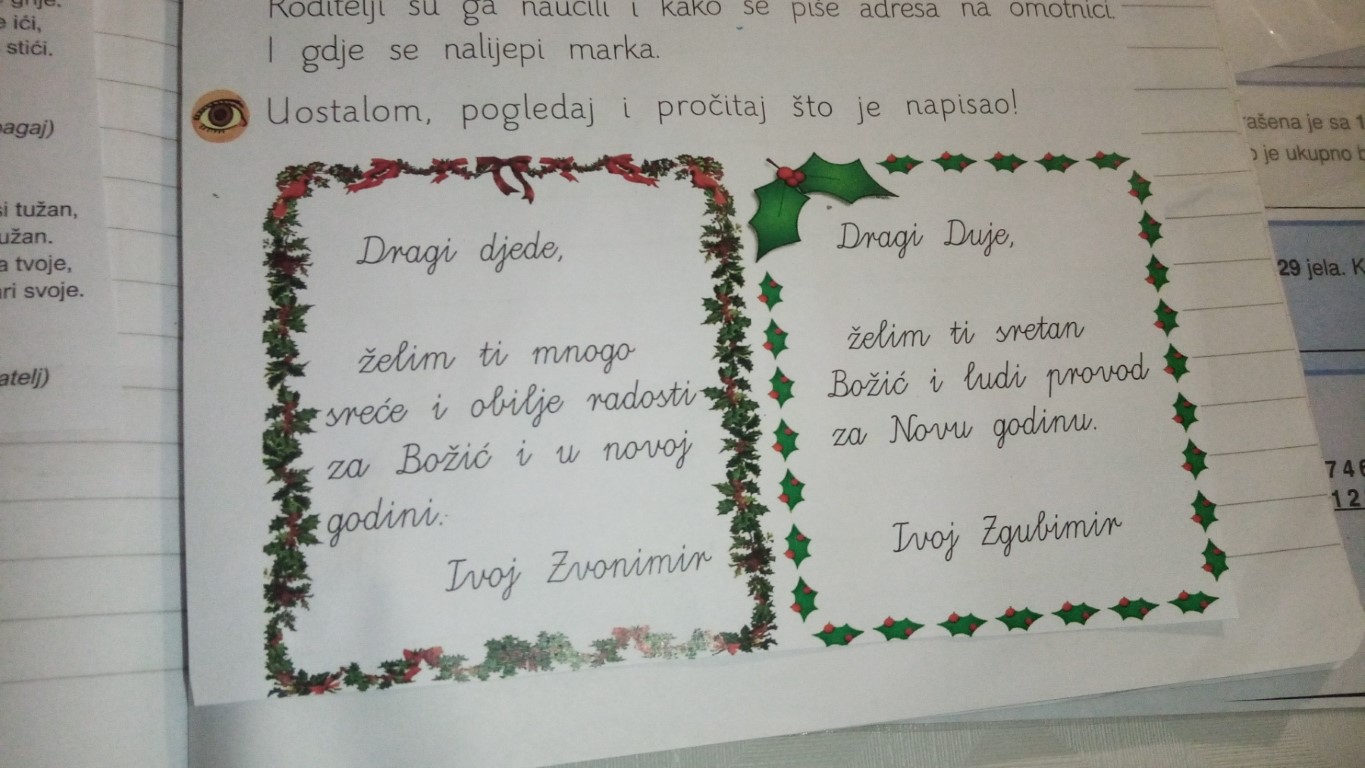 Roditelji su ga naučili i kako se piše adresa na omotnici.
I gdje se nalijepi marka.
Uostalom, pogledaj i pročitaj što je napisao!
Dragi djede,
želim ti mnogo
sreće i obilje radosti
za Božić i u novoj
godini.
Tvoj Zvonimir
Dragi Duje,
želim ti sretan
Božić i ludi provod
za Novu godinu.
Tvoj Zgubimir
ići,
stići.
tužan,
tvoje,
svoje.
je sa
je ukupno
29 jela.